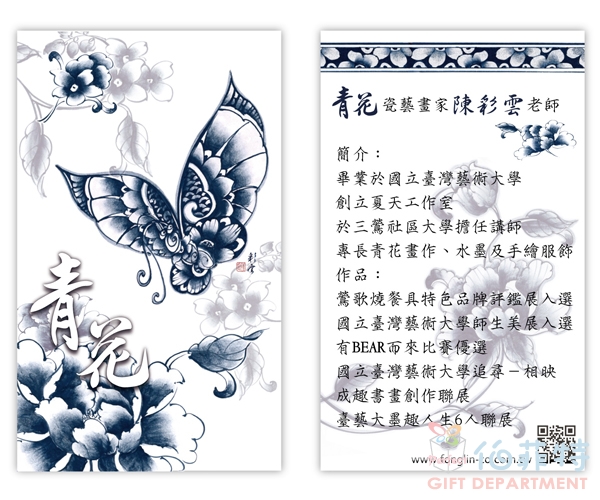 青花
彩雲
青花瓷藝畫家陳彩雲老師
簡介：
畢業於國立臺灣藝術大學
創立夏天工作室
於三鶯社區大學擔任講師
專長青花畫作、水墨及手繪服飾
作品：
鶯歌燒餐具特色品牌評鑑展入選
國立臺灣藝術大學師生美展入選
有BEAR而來比賽優選
國立臺灣藝術大學追尋－相映
成趣書畫創作聯展
臺藝大墨趣人生6人聯展
伯菲特
GIFT DEPARTMENT